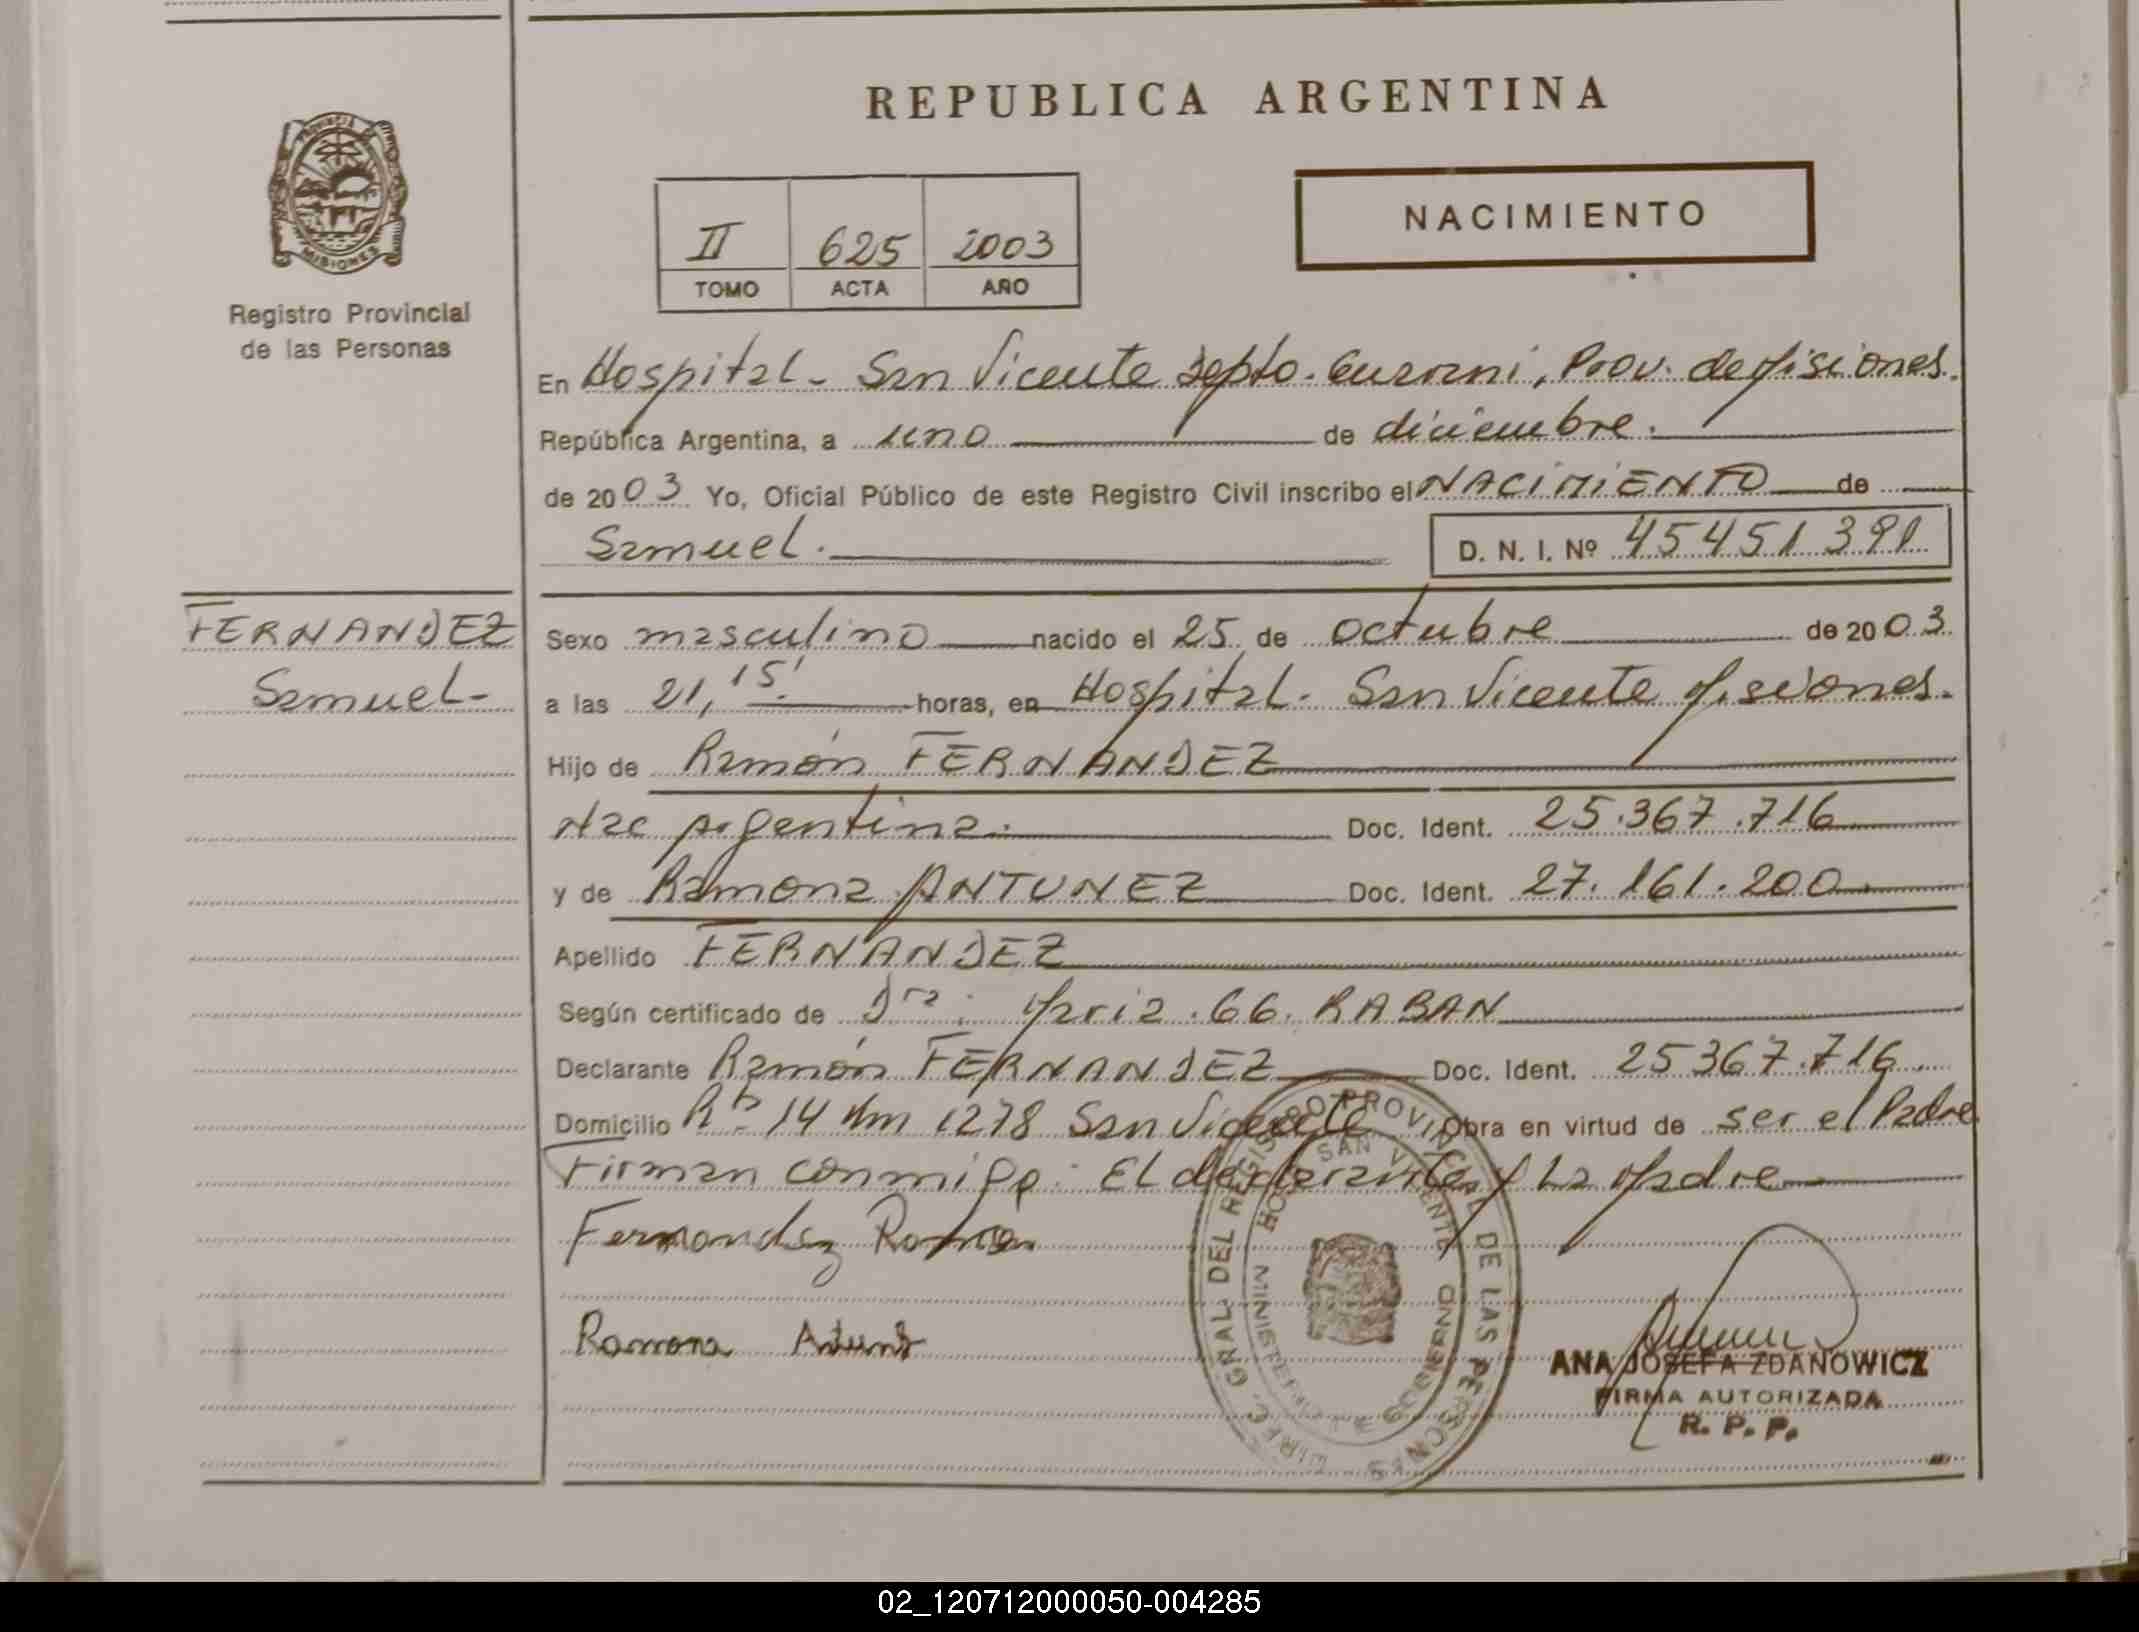 REPUBLICA ARGENTINA
PROVINCIA DE
MISIONES
Registro Provincial
de las Personas
II 625 2003
TOMO ACTA AÑO
NACIMIENTO
En Hospital - San Vicente Depto. Guarani, Prov. de Misiones.
República Argentina, a uno de diciembre.
de 2003 Yo, Oficial Público de este Registro Civil inscribo el NACIMIENTO de
Samuel. D. N. I. Nº 45451391
FERNANDEZ
Samuel-
Sexo masculino nacido el 25 de octubre de 2003
a las 21, 15' horas, en Hospital - San Vicente Misiones.
Hijo de Ramón FERNANDEZ
Nac Argentina. Doc. Ident. 25.367.716
y de Ramona ANTUNEZ Doc. Ident. 27.161.200
Apellido FERNANDEZ
Según certificado de Dra: Maria. GG. RABAN
Declarante Ramón FERNANDEZ Doc. Ident. 25367.716
Domicilio 14 Km 1278 San Vicente Obra en virtud de ser el Padre
Firman conmigo: El declarante y La Madre
Fernandez Ramon
Ramona
DIREC. GRAL. DEL REGISTRO PROVINCIAL DE LAS PERSONAS
HOSP. SAN VICENTE
MINISTERIO DE GOBIERNO
ANA JOSEFA ZDANOWICZ
FIRMA AUTORIZADA
R. P. P.
02_120712000050-004285